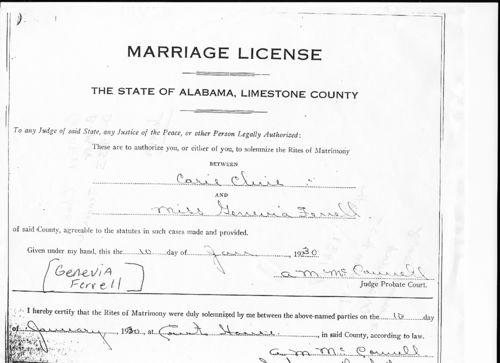 MARRIAGE LICENSE
THE STATE OF ALABAMA, LIMESTONE COUNTY
To any Judge of said State, any Justice of the Peace, or other Person Legally Authorized:
These are to authorize you, or either of you, to solemnize the Rites of Matrimony
BETWEEN
AND
Miss Genevia Ferrell
of said County, agreeable to the statutes in such cases made and provided.
Given under my hand, this the 10 day of Jan 1930
Genevia
Ferrell
a m McConnell
Judge Probate Court.
I hereby certify that the Rites of Matrimony were duly solemnized by me between the above-named parties on the 10 day
of January, 1930, at Court House in said County, according to law.
a m McConnell